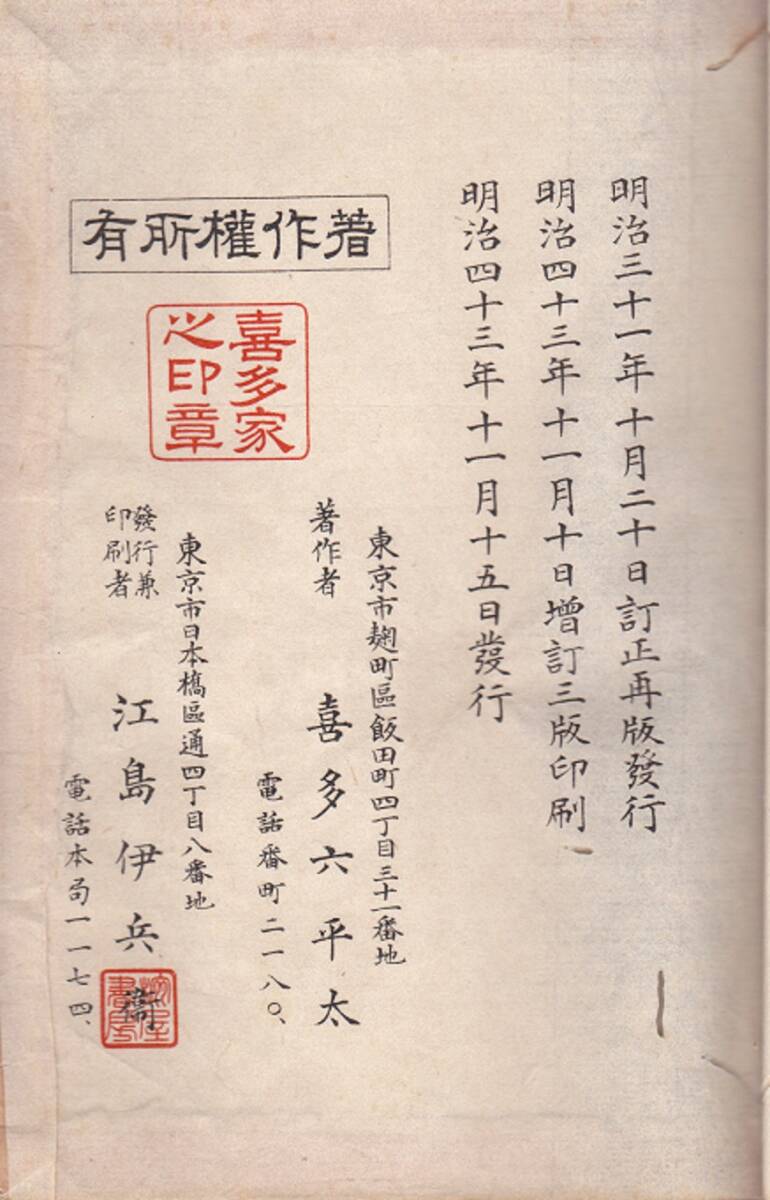 明治三十一年十月二十日訂正再版發行
明治四十三年十一月十日增訂三版印刷
明治四十三年十一月十五日發行
著作權所有
喜多家
之印章
東京市麹町區飯田町四丁目三十一番地
著作者
喜多六平太
電話番町二一八〇、
東京市日本橋區通四丁目八番地
發行兼
印刷者
江島伊兵衞
電話本局一一七四、